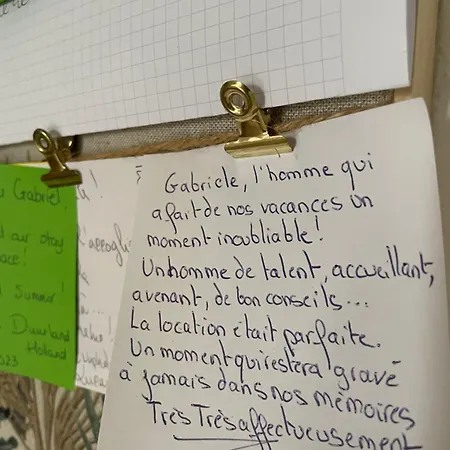 Gabriele, l'homme qui
a fait de nos vacances un
moment inoubliable!
Un homme de talent, accueillant,
avenant, de bon conseils...
La location était parfaite.
Un moment qui restera gravé
à jamais dans nos mémoires
Très Très affectueusement
Gabriel,
our stay
Holland